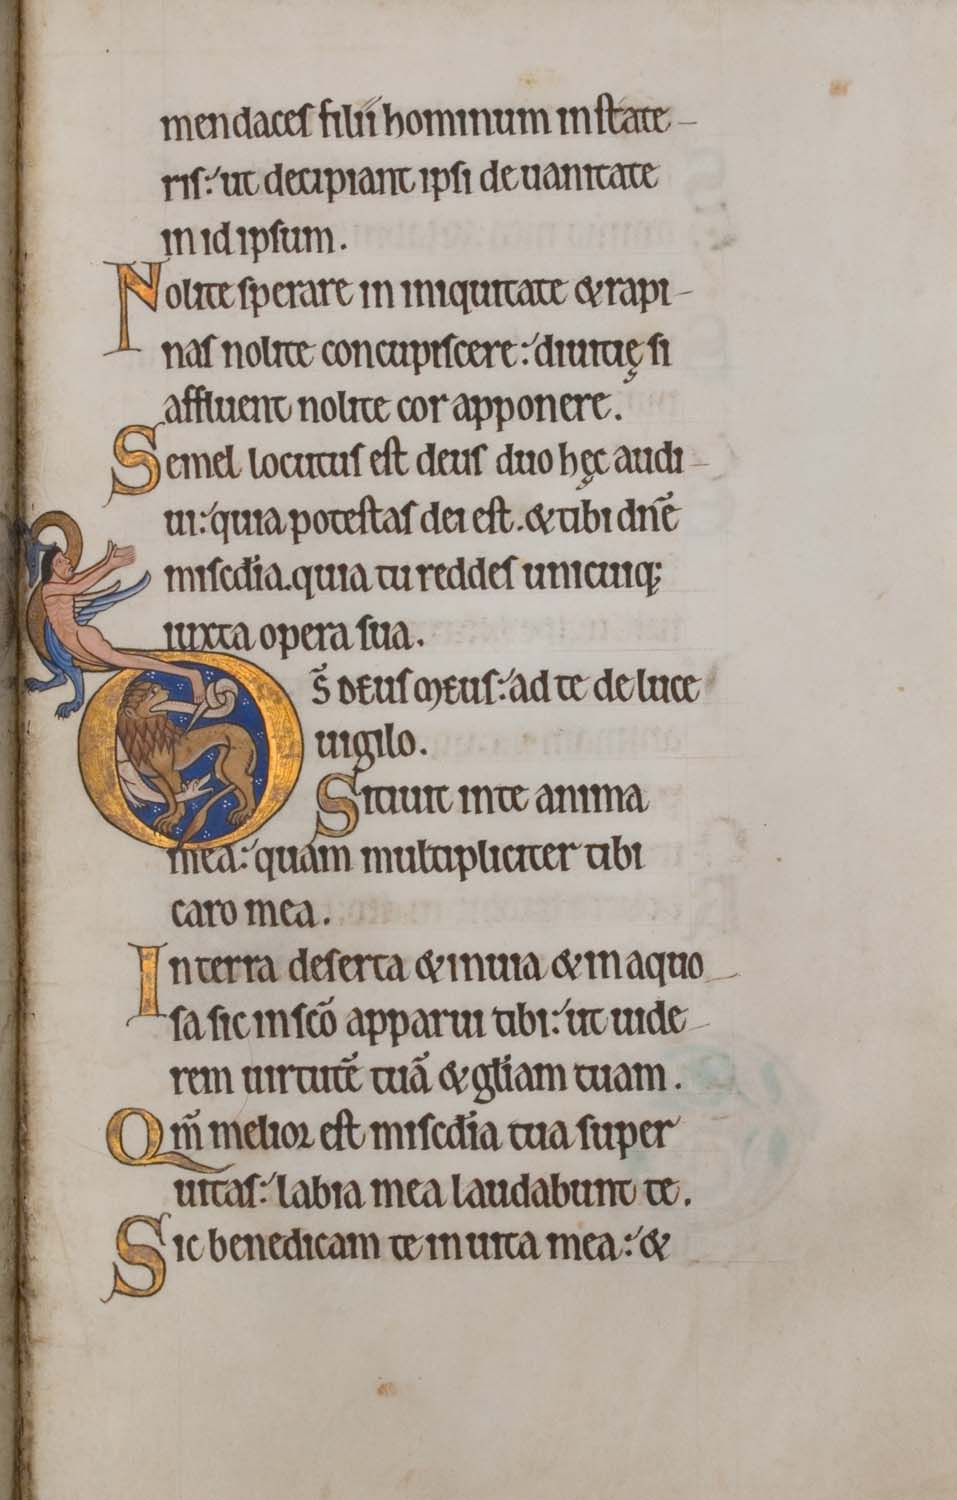 mendaceſ filii hominum inſtate-
riſ: ut decipiant ipſi de uanitate
in id ipſum.
Nolite ſperare in iniquitate & rapi-
naſ nolite concupiſcere: diuitię ſi
affluent nolite cor apponere.
Semel locutuſ eſt deuſ duo hęc audi-
ui: quia poteſtaſ dei eſt. & tibi dn̄e
miſcd̄ia. quia tu reddeſ unicuiq;
iuxta opera ſua.
Ds̄ DEUſ MEUſ: ad te de luce
uigilo.
Sitiuit in te anima
mea: quam multipliciter tibi
caro mea.
In terra deſerta & inuia & inaquo-
ſa ſic in ſcō apparui tibi: ut uide-
rem uirtutē tuā & gl̄iam tuam.
Qm̄ melior eſt miſcd̄ia tua ſuper
uitaſ: labia mea laudabunt te.
Sic benedicam te in uita mea: &